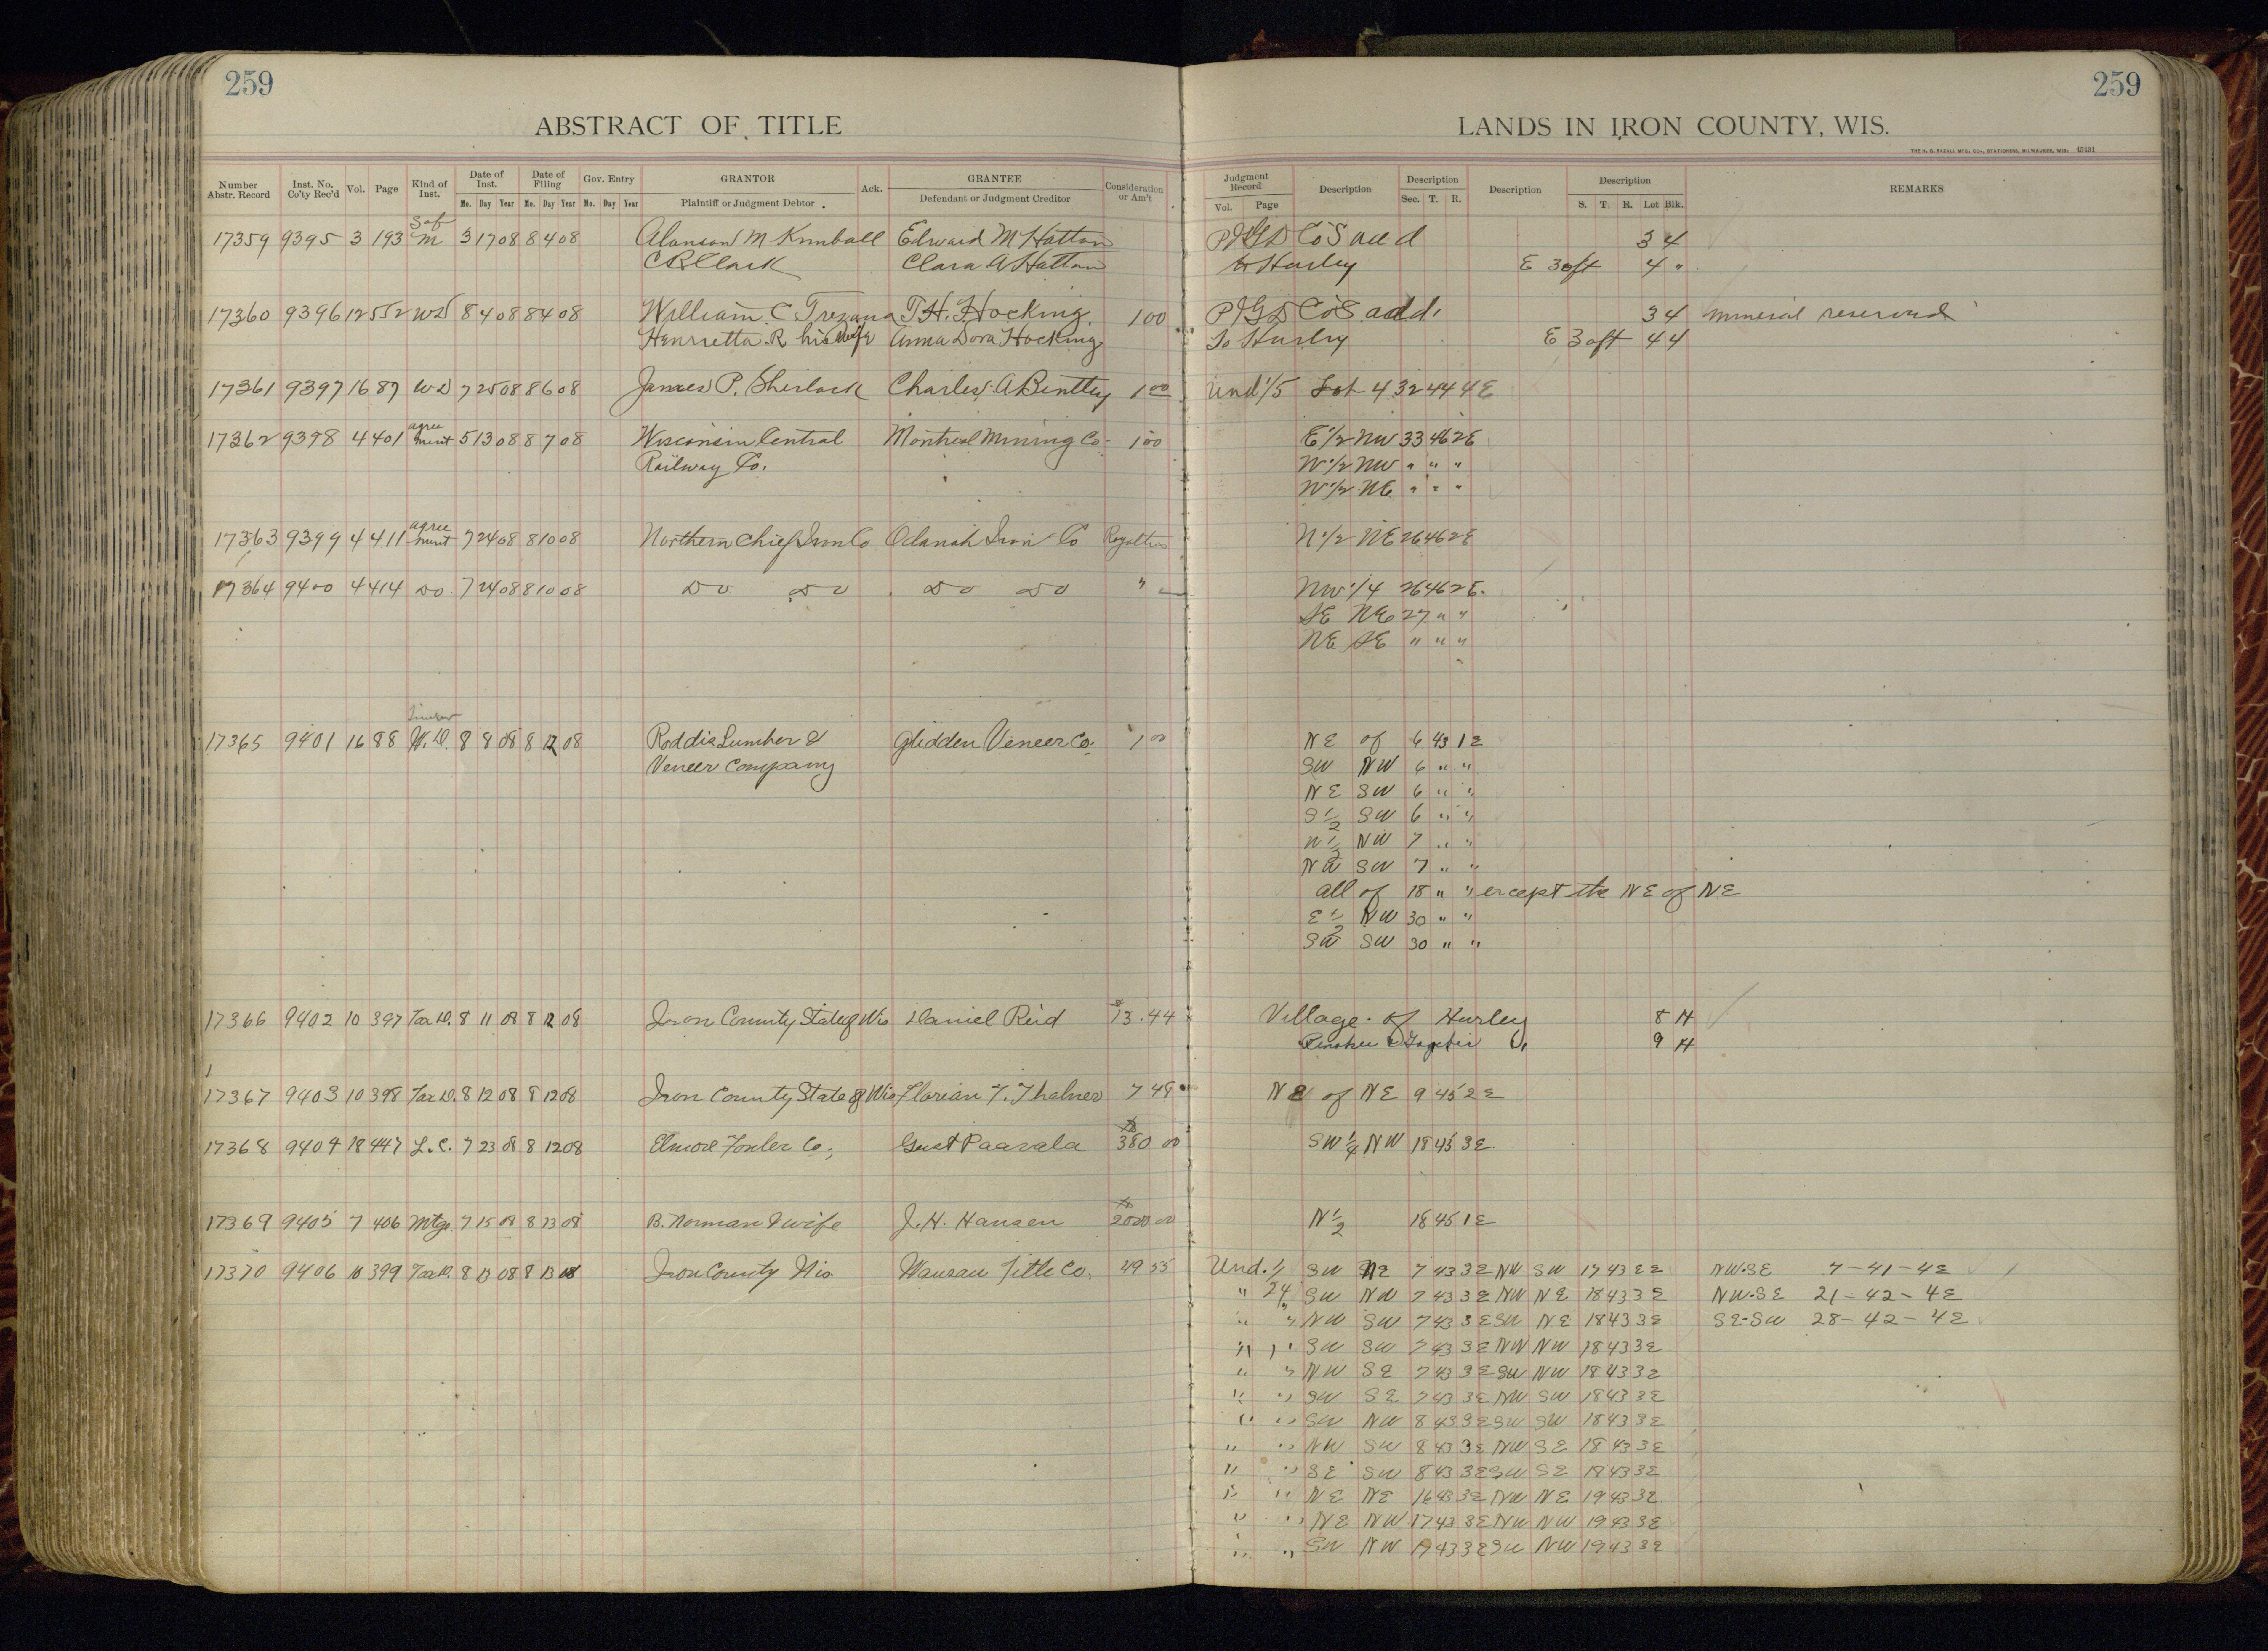 259
ABSTRACT OF TITLE
Number Abstr. Record Inst. No. Co'ty Rec'd Vol. Page Kind of Inst. Date of Inst. Mo. Day Year Date of Filing Mo. Day Year Gov. Entry Mo. Day Year GRANTOR Plaintiff or Judgment Debtor Ack. GRANTEE Defendant or Judgment Creditor Consideration or Am't
259
LANDS IN IRON COUNTY, WIS.
THE H. G. RAZALL MFG. CO., STATIONERS, MILWAUKEE, WIS. 43491
Judgment Record Vol. Page Description Description Sec. T. R. Description Description S. T. R. Lot Blk. REMARKS
17359 9395 3 193 Sat M 3 17 08 8 4 08 Alanson M Kimball Edward M Hatton Co's add 3 4
C R Clark Clara A Hatton to Hurley E 30ft 4 "
17360 9396 12 552 WD 8 4 08 8 4 08 William C. Trezona T. H. Hocking 1 00 Co's add. 3 4 mineral reserved
Henrietta R his wife Anna Dora Hocking To Hurley E 30ft 4 4
17361 9397 16 87 WD 7 25 08 8 6 08 James P. Sherlock Charles A Bentley 1 00 Und 1/5 Lot 4 32 44 4E
17362 9398 4 401 agree ment 5 13 08 8 7 08 Wisconsin Central Montreal Mining Co. 1 00 E 1/2 NW 33 46 2E
Railway Co. W 1/2 NW " " "
W 1/2 NE " " "
17363 9399 4 411 agree ment 7 24 08 8 10 08 Northern Chief Iron Co Odanah Iron Co Royalties N 1/2 NE 26 46 2E
17364 9400 4 414 Do 7 24 08 8 10 08 Do Do Do Do " NW 1/4 26 46 2E.
SE NE 27 " "
NE SE " " "
17365 9401 16 88 Timber W.D. 8 8 08 8 12 08 Roddis Lumber & Glidden Veneer Co. 1 00 NE of 6 43 1 E
Veneer Company SW NW 6 " "
NE SW 6 " "
S 1/2 SW 6 " "
N 1/2 NW 7 " "
SW 7 " "
all of 18 " " except the NE of NE
E 1/2 NW 30 " "
SW SW 30 " "
17366 9402 10 397 Tax D. 8 11 08 8 12 08 Iron County State of Wis Daniel Reid 13.44 Village of Hurley 8 H
9 H
17367 9403 10 398 Tax D. 8 12 08 8 12 08 Iron County State of Wis Florian J. Thalner 7 48 NE of NE 9 45 2 E
17368 9404 18 447 L.C. 7 23 08 8 12 08 Elmore Fowler Co., Gust Paavala 380 00 SW 1/4 NW 18 45 3E.
17369 9405 7 406 Mtge 7 15 08 8 13 08 B. Norman & wife J. H. Hansen 2000 00 N 1/2 18 45 1 E
17370 9406 10 399 Tax D. 8 13 08 8 13 08 Iron County Wis Wausau Title Co. 49 55 Und. 1/ SW NE 7 43 3E NW SW 17 43 3E NW-SE 7-41-4E
" 24 SW NW 7 43 3E NW NE 18 43 3E NW-SE 21-42-4E
" " NW SW 7 43 3E SW NE 18 43 3E SE-SW 28-42-4E
" " SW SW 7 43 3E NW NW 18 43 3E
" " NW SE 7 43 3E SW NW 18 43 3E
" " SW SE 7 43 3E NW SW 18 43 3E
" " SW NW 8 43 3E SW SW 18 43 3E
" " NW SW 8 43 3E NW SE 18 43 3E
" " SE SW 8 43 3E SW SE 18 43 3E
" " NE NE 16 43 3E NW NE 19 43 3E
" " NE NW 17 43 3E NW NW 19 43 3E
" " SW NW 17 43 3E SW NW 19 43 3E